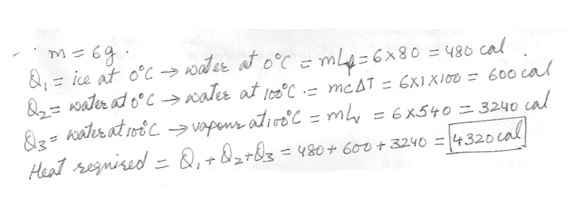 ∴ m = 6g.
Q₁ = ice at 0°C → water at 0°C = mLf = 6×80 = 480 cal.
Q₂ = water at 0°C → water at 100°C = mcΔT = 6×1×100 = 600 cal
Q₃ = water at 100°C → vapour at 100°C = mLv = 6×540 = 3240 cal
Heat required = Q₁+Q₂+Q₃ = 480+600+3240 = 4320 cal